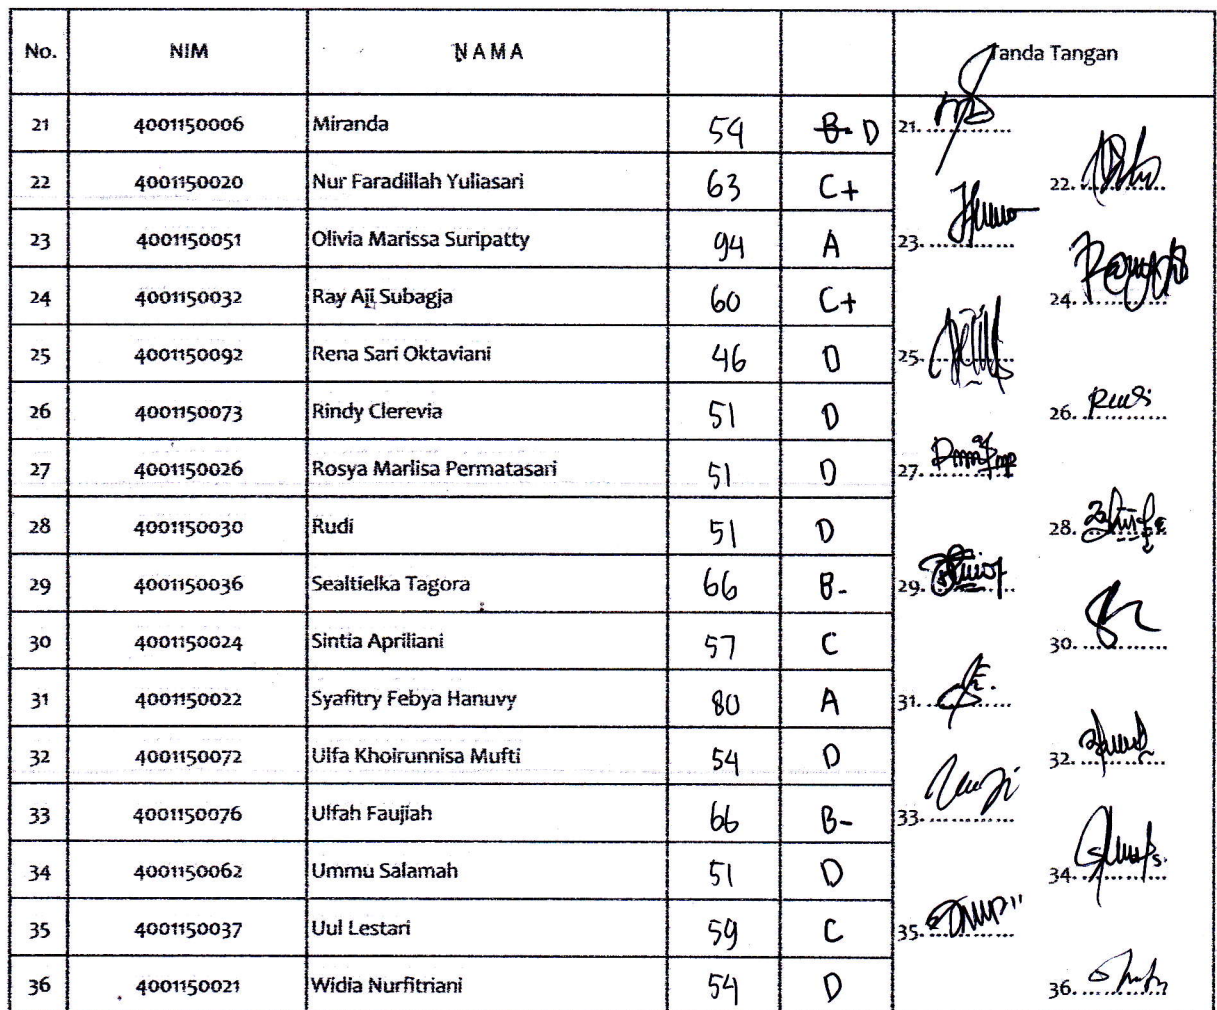 No. NIM NAMA Tanda Tangan
21 4001150006 Miranda 54 B- D 21. ............
22 4001150020 Nur Faradillah Yuliasari 63 C+ 22. ............
23 4001150051 Olivia Marissa Suripatty 94 A 23. ............
24 4001150032 Ray Aji Subagja 60 C+ 24. ............
25 4001150092 Rena Sari Oktaviani 46 D 25. ............
26 4001150073 Rindy Clerevia 51 D 26. ............
27 4001150026 Rosya Marlisa Permatasari 51 D 27. ............
28 4001150030 Rudi 51 D 28. ............
29 4001150036 Sealtielka Tagora 66 B- 29. ............
30 4001150024 Sintia Apriliani 57 C 30. ............
31 4001150022 Syafitry Febya Hanuvy 80 A 31. ............
32 4001150072 Ulfa Khoirunnisa Mufti 54 D 32. ............
33 4001150076 Ulfah Faujiah 66 B- 33. ............
34 4001150062 Ummu Salamah 51 D 34. ............
35 4001150037 Uul Lestari 59 C 35. ............
36 4001150021 Widia Nurfitriani 54 D 36. ............